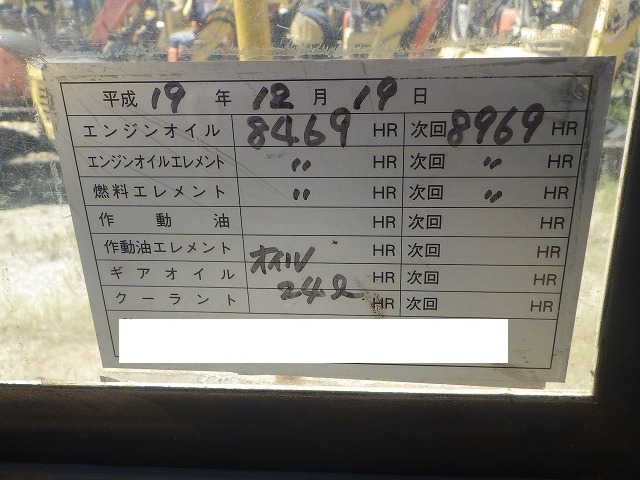 平成 19 年 12 月 19 日
エンジンオイル 8469 HR 次回 8969 HR
エンジンオイルエレメント 〃 HR 次回 〃 HR
燃料エレメント 〃 HR 次回 〃 HR
作動油 HR 次回 HR
作動油エレメント HR 次回 HR
ギアオイル オイル HR 次回 HR
クーラント 24ℓ HR 次回 HR